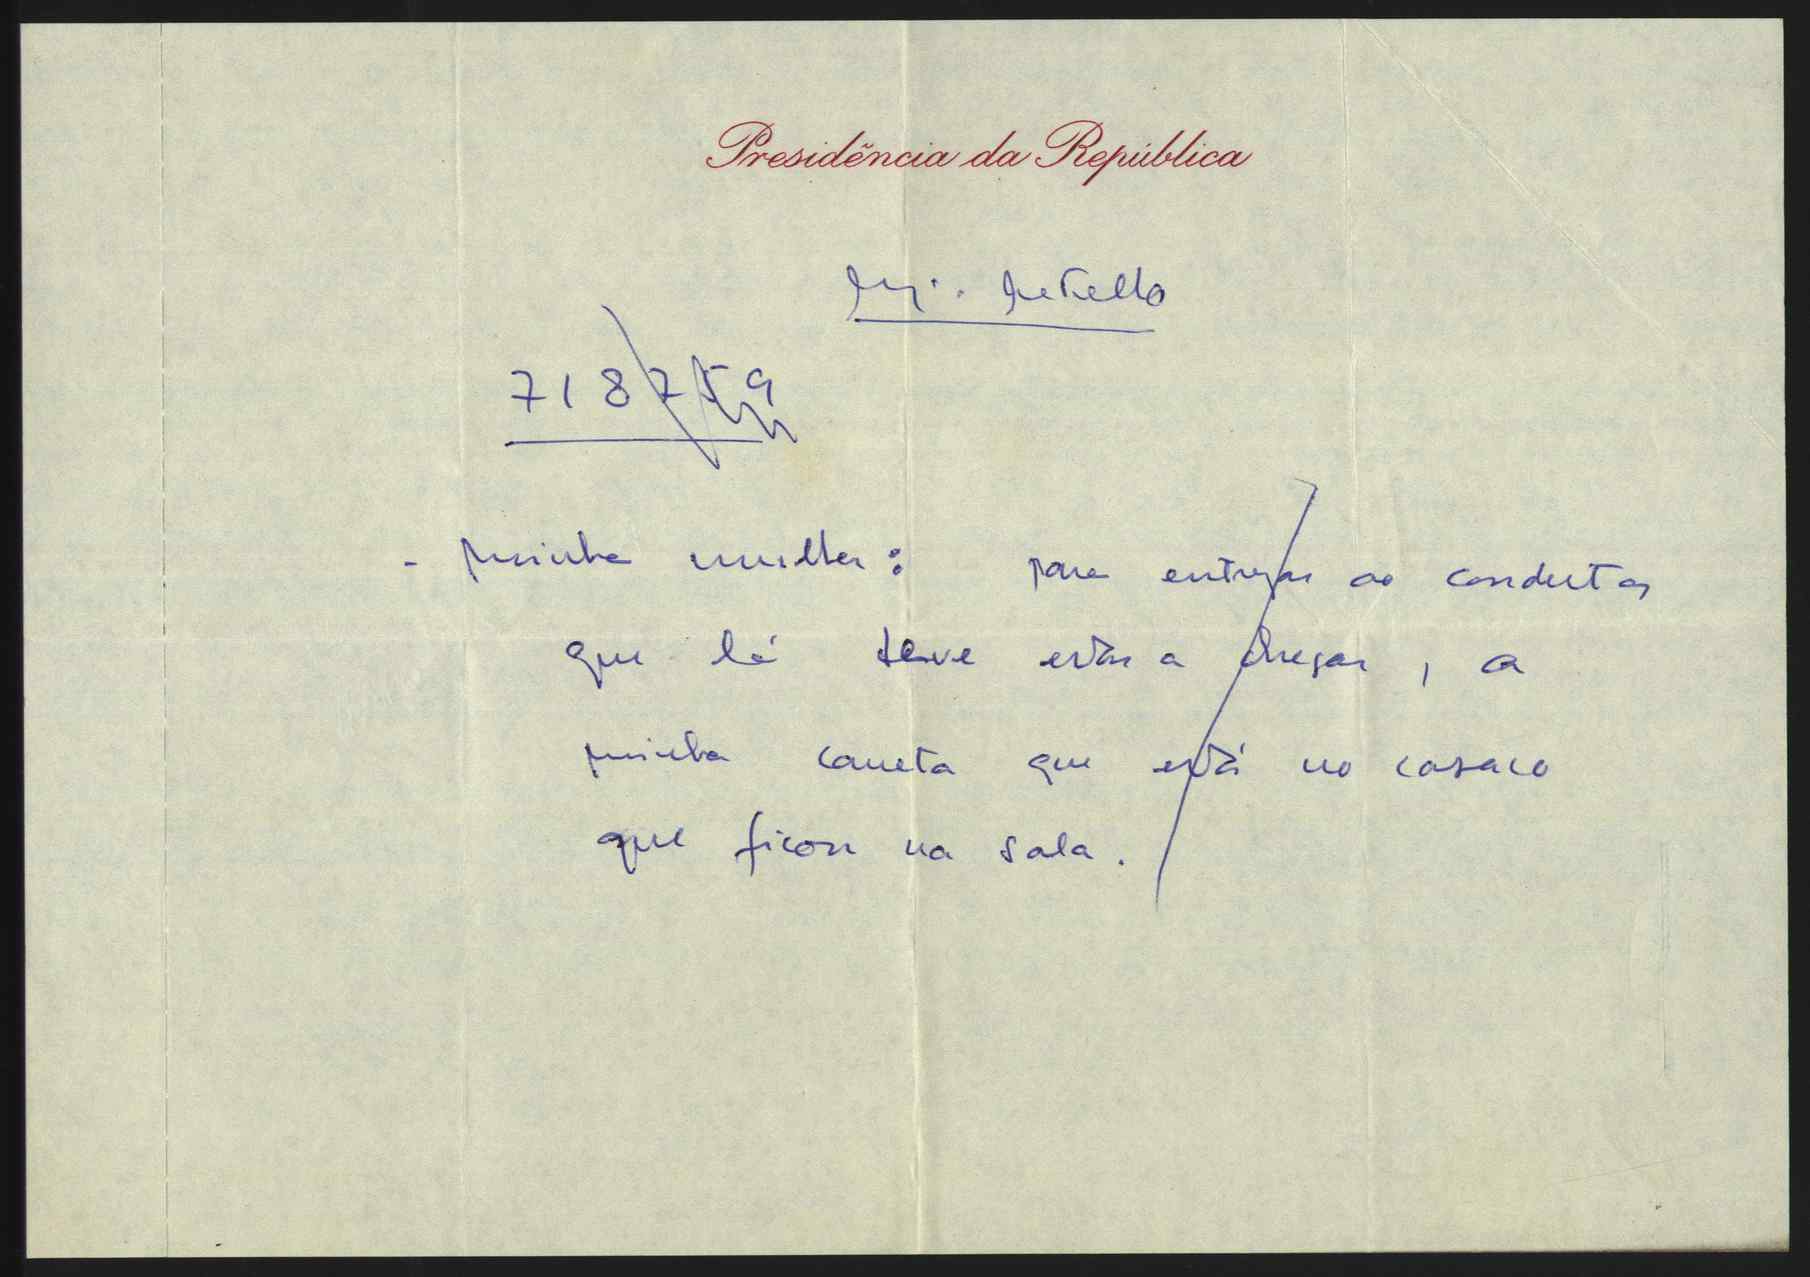 Presidência da República
Maj. Metello
718759
- minha mulher: para entregar ao condutor
que lá deve estar a chegar, a
minha caneta que está no casaco
que ficou na sala.